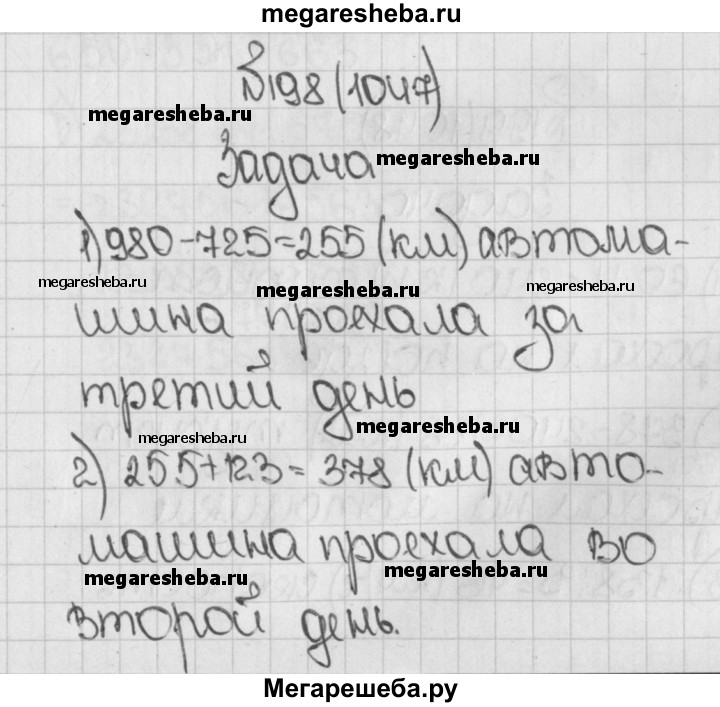 megaresheba.ru
№198 (1047)
megaresheba.ru
Задача megaresheba.ru
1) 980-725=255 (км) автома-
megaresheba.ru megaresheba.ru megaresheba.ru
шина проехала за
третий день
megaresheba.ru megaresheba.ru
2) 255+123=378 (км) авто-
машина проехала во
megaresheba.ru megaresheba.ru
второй день.
Мегарешеба.ру